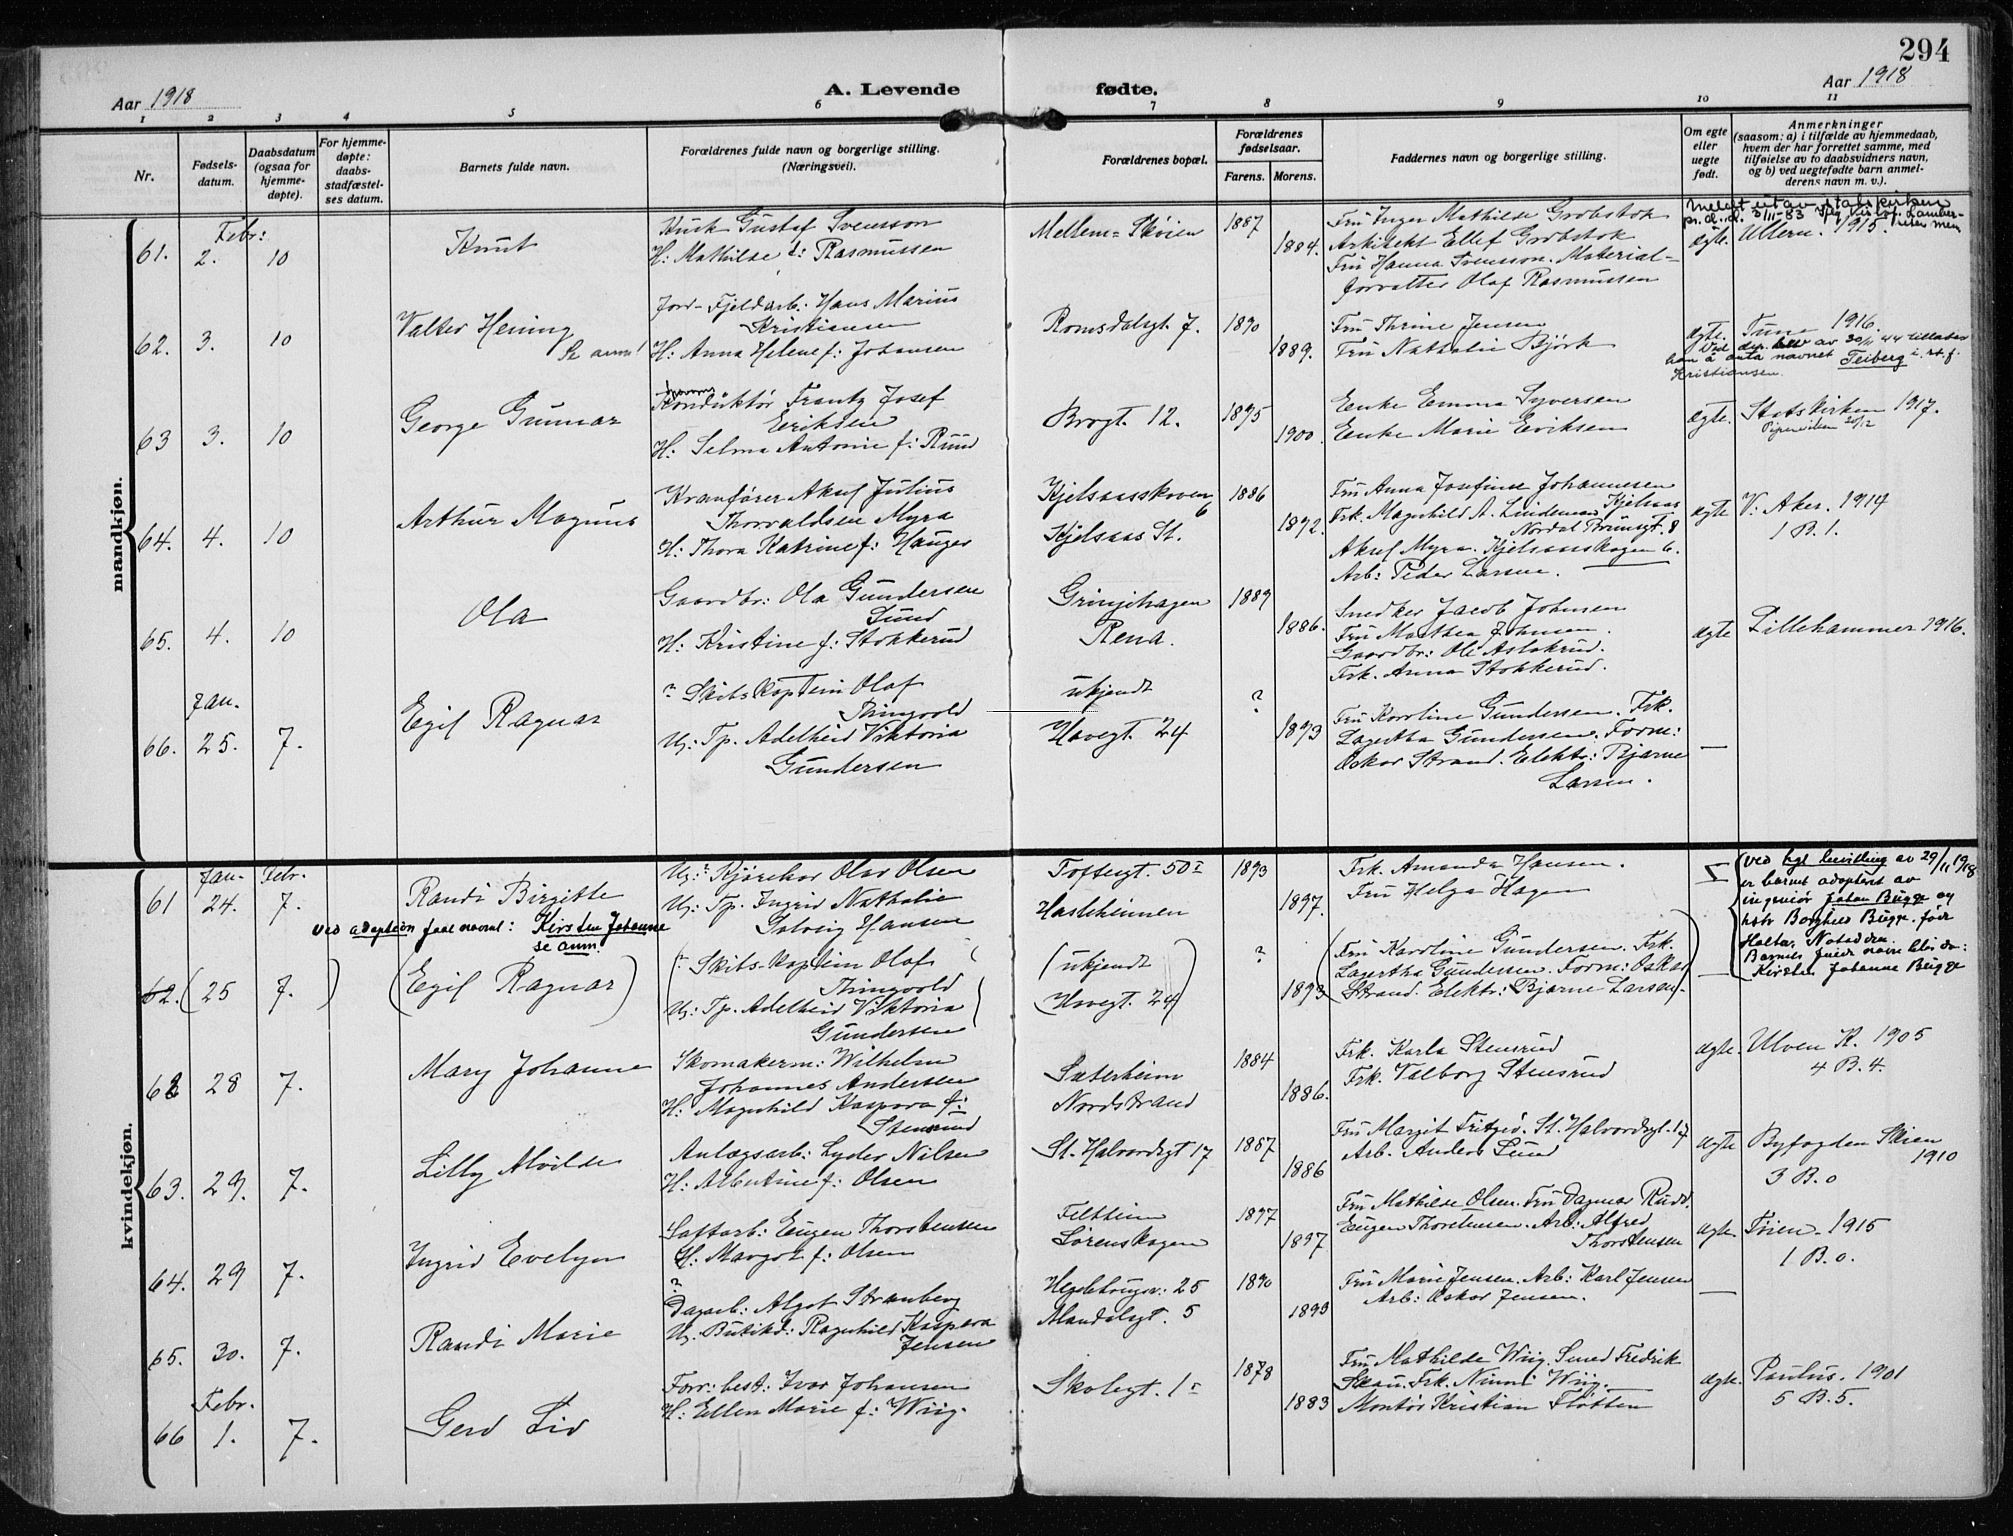 294
Aar 1918
A. Levende fødte.
Aar 1918
1 2 3 4 5 6 7 8 9 10 11
Nr.
Fødsels-
datum.
Daabsdatum
(ogsaa for
hjemme-
døpte).
For hjemme-
døpte:
daabs-
stadfæstel-
ses datum.
Barnets fulde navn.
Forældrenes fulde navn og borgerlige stilling.
(Næringsvei).
Forældrenes bopæl.
Forældrenes
fødselsaar.
Farens. Morens.
Faddernes navn og borgerlige stilling.
Om egte
eller
uegte
født.
Anmerkninger
(saasom: a) i tilfælde av hjemmedaab,
hvem der har forrettet samme, med
tilføielse av to daabsvidners navn,
og b) ved uegtefødte barn anmel-
derens navn m. v.).
mandkjøn.
Febr:
61. 2. 10
Knut
Gustaf Svensson
H: Mathilde f: Rasmussen
Mellem-Skøien
1887
1884.
Fru Inger Mathilde Grobstok
Arkitekt Ellef Grobstok
Fru Hanna Svensson. Material-
forvalter Olaf Rasmussen
ægte.
Meldt ut av statskirken
Ullern. 1915.
62. 3. 10
Valter Hening
Se anm!
Jord- Fjeldarb: Hans Marius
Kristiansen
H: Anna Helene f: Johansen
Romsdalsgt. 7.
1890
1889.
Fru Thrine Jensen
Fru Nathalie Bjørk
ægte.
Tune 1916.
Ved dep. brev av 30/1 44 tillates
han å anta navnet Teiberg i. st. f.
Kristiansen.
63 3. 10
George Gunnar
Konduktør Frantz Josef
Eriksen
H: Selma Antonie f: Ruud
Brogt. 12.
1895
1900.
Enke Emma Syversen
Enke Marie Eriksen
ægte.
Statskirken 1917.
Piperviken 20/12
64. 4. 10
Arthur Magnus
Kranfører Aksel Julius
Thorvaldsen Myra
H: Thora Katrine f: Hauger
Kjelsaasskoven
6
Kjelsaas St.
1886
1892.
Fru Anna Josefine Johannesen
Kjelsaas
Frk. Magnhild A. Lindeman
Nordal Brunsgt. 8
Aksel Myra. Kjelsaasskogen 6.
Arb: Peder Larsen.
ægte
V: Aker. 1914
1 B. 1.
65. 4. 10
Ola
Gaardbr: Ola Gundersen
Sund
H: Kristine f: Stokkerud
Grinjihagen
Rena.
1889
1886.
Snedker Jacob Johnsen
Fru Marthea Johnsen.
Gaardbr: Ole Aslakrud.
Frk. Anna Stokkerud.
ægte
Lillehammer 1916.
Jan.
66. 25. 7.
Egil Ragnar
? Skibskaptein Olaf
Thingvold
U: Tp. Adelheid Viktoria
Gundersen
ukjendt
Havegt. 24
?
1893
Fru Karoline Gundersen. Frk.
Lagertha Gundersen. Form:
Oskar Strand. Elektr: Bjarne
Larsen.
—
kvindekjøn.
Jan. Febr.
61 24. 7.
Randi Birgitte
ved adoption faat navnet: Kirsten Johanne
se anm.
U: ? Kjørekar Olav Olsen
U: Tp. Ingrid Nathalie
Solveig Hansen
Toftesgt. 50
Hasleheimen
1893
1897.
Frk. Amanda Hansen.
Fru Helga Hagen
Ved kgl bevilling av 29/11 1918
er barnet adopteret av
ingeniør Johan Bugge og
hstr Borghild Bugge, født
Holter, Notodden.
Barnets fulde navn blir da:
Kirsten Johanne Bugge
62. (25 7.)
(Egil Ragnar)
(? Skibskaptein Olaf
Thingvold
U: Tp. Adelheid Viktoria
Gundersen)
(ukjendt
Havegt. 24)
?
1893
(Fru Karoline Gundersen. Frk.
Lagertha Gundersen. Form: Oskar
Strand. Elektr: Bjarne Larsen.
—
62 28 7.
Mary Johanne
Skomakerm: Wilhelm
Johannes Andersen
H: Magnhild Kaspara f:
Stensrud
Sæterheim
Nordstrand
1884
1886.
Frk. Karla Stensrud
Frk. Valborg Stensrud
ægte.
Ulven K. 1905
4 B. 4.
63. 29. 7.
Lilly Alvilde
Anlægsarb: Lyder Nilsen
H: Albertine f: Olsen
St. Halvardsgt 17
1887
1886
Fru Margit Fritzvd. St. Halvardsgt. 17
Arb. Anders Lund
ægte
Byfogden Skien
1910
3 B. 0
64. 29 7.
Ingrid Evelyn
Saftarb: Eugen Thorstensen
H: Margot f: Olsen
Feltheim
Lørenskogen
1897
1897
Fru Mathilde Olsen. Fru Dagmar Rudd.
Eugen Thorstensen. Arb: Alfred
Thorstensen
ægte.
Tøien. 1915
1 B. 0.
65. 30. 7.
Randi Marie
?
Dagarb: Algot Stranberg
U. Butikd: Ragnhild Kaspara
Jensen
Hegdehaugsv: 25
Mandalsgt. 5
1890
1893
Fru Marie Jensen. Arb: Karl Jensen
Arb: Oskar Jensen.
—
Febr.
66 1. 7.
Gerd Liv
Forr: best: Ivar Johansen
H: Ellen Marie f: Wiig.
Skolegt. 1
1878
1883
Fru Mathilde Wiig. Smed Fredrik
Skau. Frk. Ninni Wiig.
Montør Kristian Fløtten
ægte.
Paulus. 1901
5 B. 5.